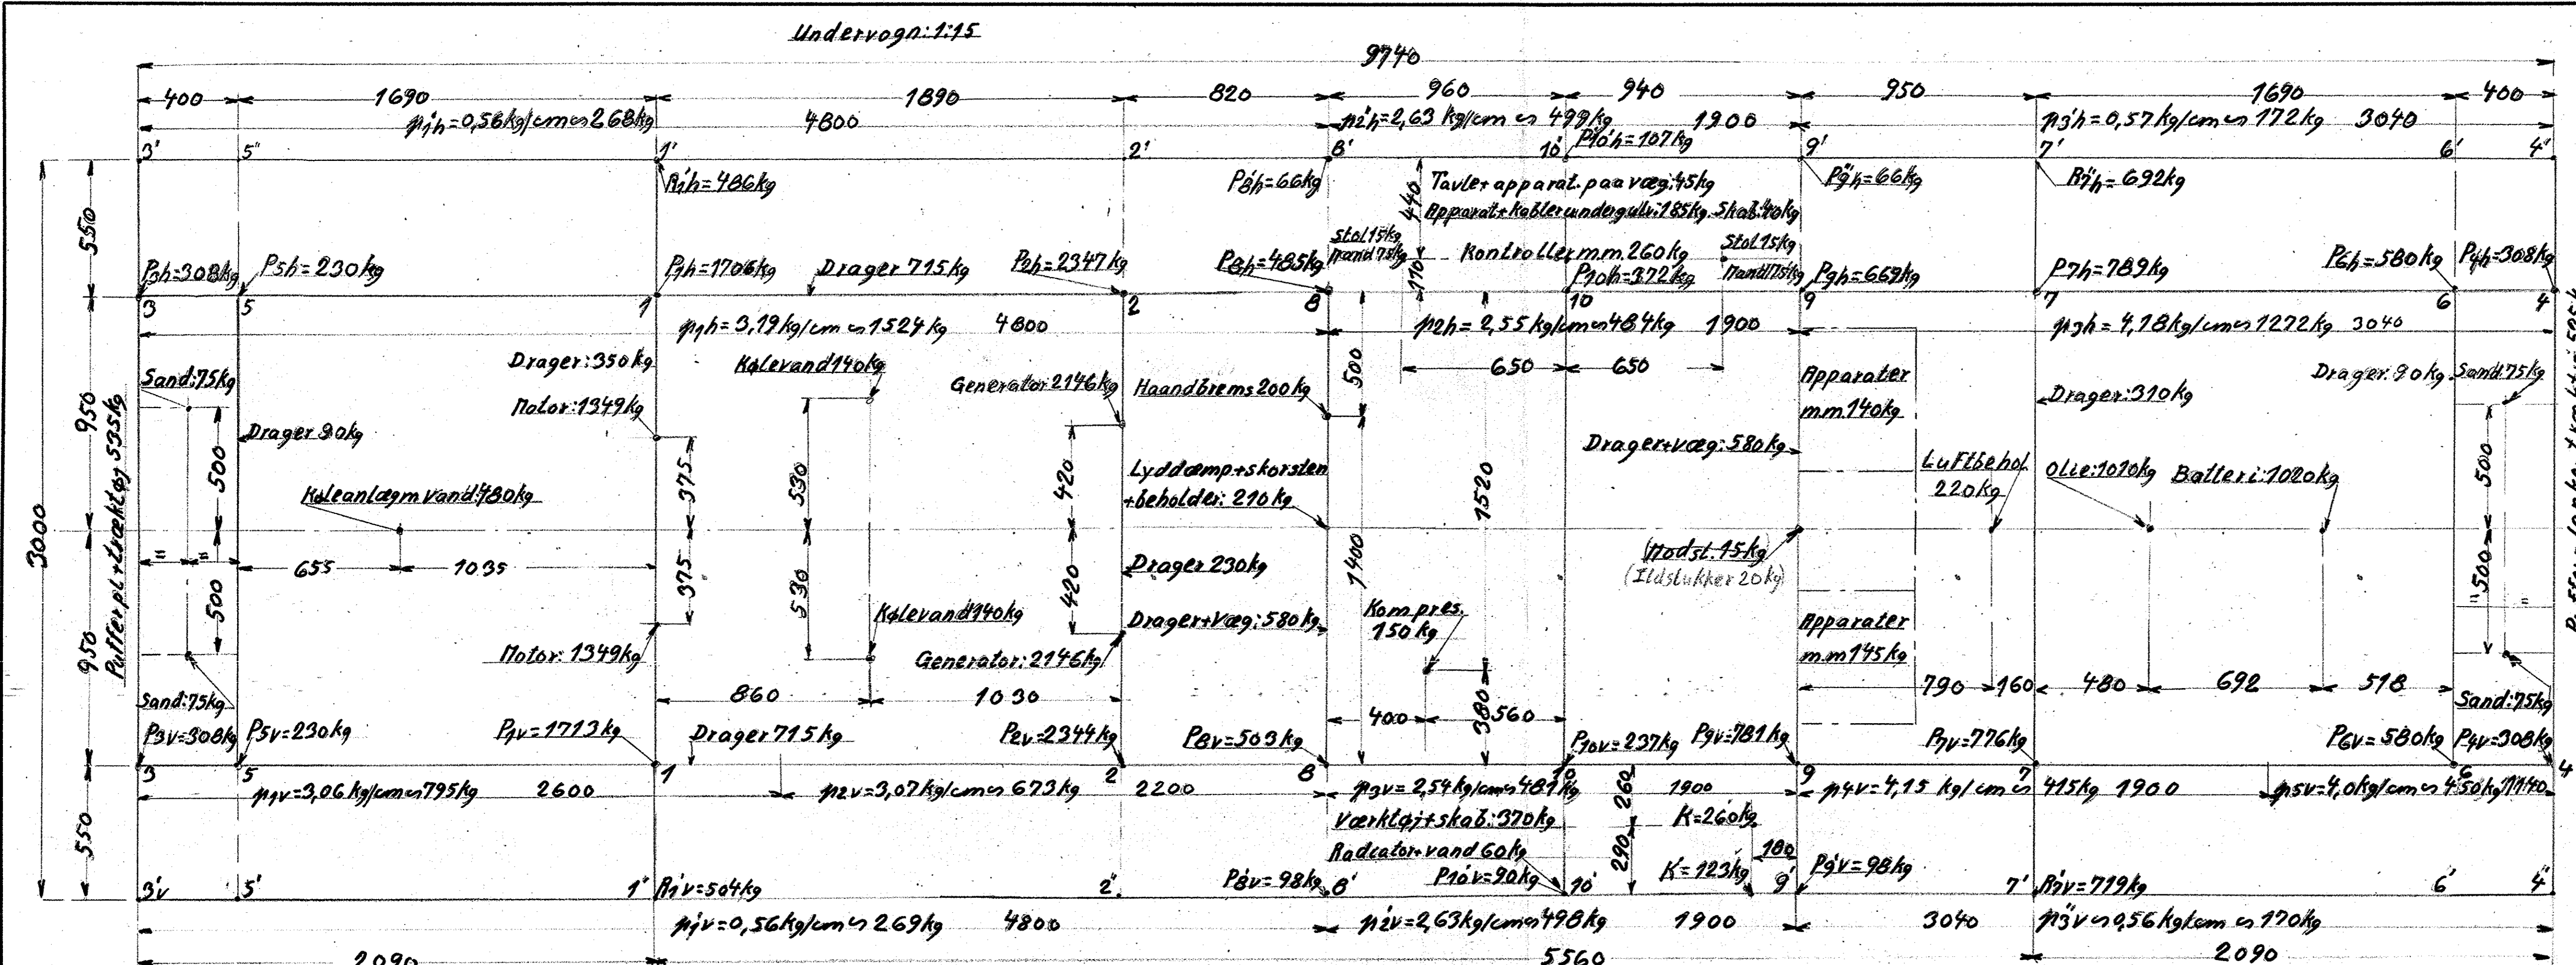 Undervogn: 1:15
9740
400 1690 1890 820 960 940 950 1690 400
p1'h=0,56kg/cm ∽ 268kg 4800 p2'h=2,63 kg/cm ∽ 499kg 1900 p3'h=0,57kg/cm ∽ 172kg 3040
3' 5" 1' 2' 8' 10' P10'h=107kg 9' 7' 6' 4'
R1'h=486kg P8'h=66kg Tavle+apparat. paa væg: 45kg P9'h=66kg R7'h=692kg
440 Apparat+kabler under gulv: 185kg. Skab: 40kg
550
Stol 15kg Mand 75kg Kontroller m m. 260kg Stol 15kg Mand 75kg
110
P3h=308kg P5h=230kg P1h=1706kg Drager 715kg P2h=2347kg P8h=485kg P10h=372kg P9h=669kg P7h=789kg P6h=580kg P4h=308kg
3 5 1 2 8 10 9 7 6 4
p1h=3,19kg/cm ∽ 1524kg 4800 p2h=2,55kg/cm ∽ 484kg 1900 p3h=4,18kg/cm ∽ 1272kg 3040
Drager: 350kg Kølevand 140kg 500 650 650
Sand: 75kg Motor: 1349kg Generator 2146kg Haandbrems 200kg Apparater Drager: 310kg Drager: 90kg Sand: 75kg
mm. 140kg
Drager 90kg Drager+væg: 580kg
950 500 375 530 420 Lyddæmp+skorsten 1520 Luftbehol. Olie: 1010kg Batteri: 1020kg 500
Køleanlæg m vand: 480kg +beholder: 210kg 220kg
3000
Pufferpl+trækktøj 535kg
= = 655 1035 375 530 420 Drager 230kg 1400 (Modst. 15kg) 500
(Ildslukker 20kg) = =
950 500 Kølevand 140kg Drager+Væg: 580kg Kompres. Apparater
150kg mm 145kg
Motor: 1349kg Generator: 2146kg
860 1030 790 160 480 692 518
Sand: 75kg 400 560 380 Sand: 75kg
P3v=308kg P5v=230kg P1v=1713kg Drager 715kg P2v=2344kg P8v=503kg P10v=237kg P9v=781kg P7v=776kg P6v=580kg P4v=308kg
3 5 1 2 8 10 9 7 6 4
p1v=3,06kg/cm ∽ 795kg 2600 p2v=3,07kg/cm ∽ 673kg 2200 p3v=2,54kg/cm ∽ 481kg 260 1900 p4v=4,15 kg/cm ∽ 415kg 1900 p5v=4,0kg/cm ∽ 450kg 1140
Værktøj+skab: 370kg K=260kg
550 Radiator+vand 60kg 290 180
3'v 5' 1" R1'v=504kg 2" P8'v=98kg 8' P10'v=90kg 10' K'=123kg 9' P9'v=98kg 7' R7'v=719kg 6' 4"
p1'v=0,56kg/cm ∽ 269kg 4800 p2'v=2,63kg/cm ∽ 498kg 1900 3040 p3"v ∽ 0,56kg/cm ∽ 170kg
2090 5560 2090